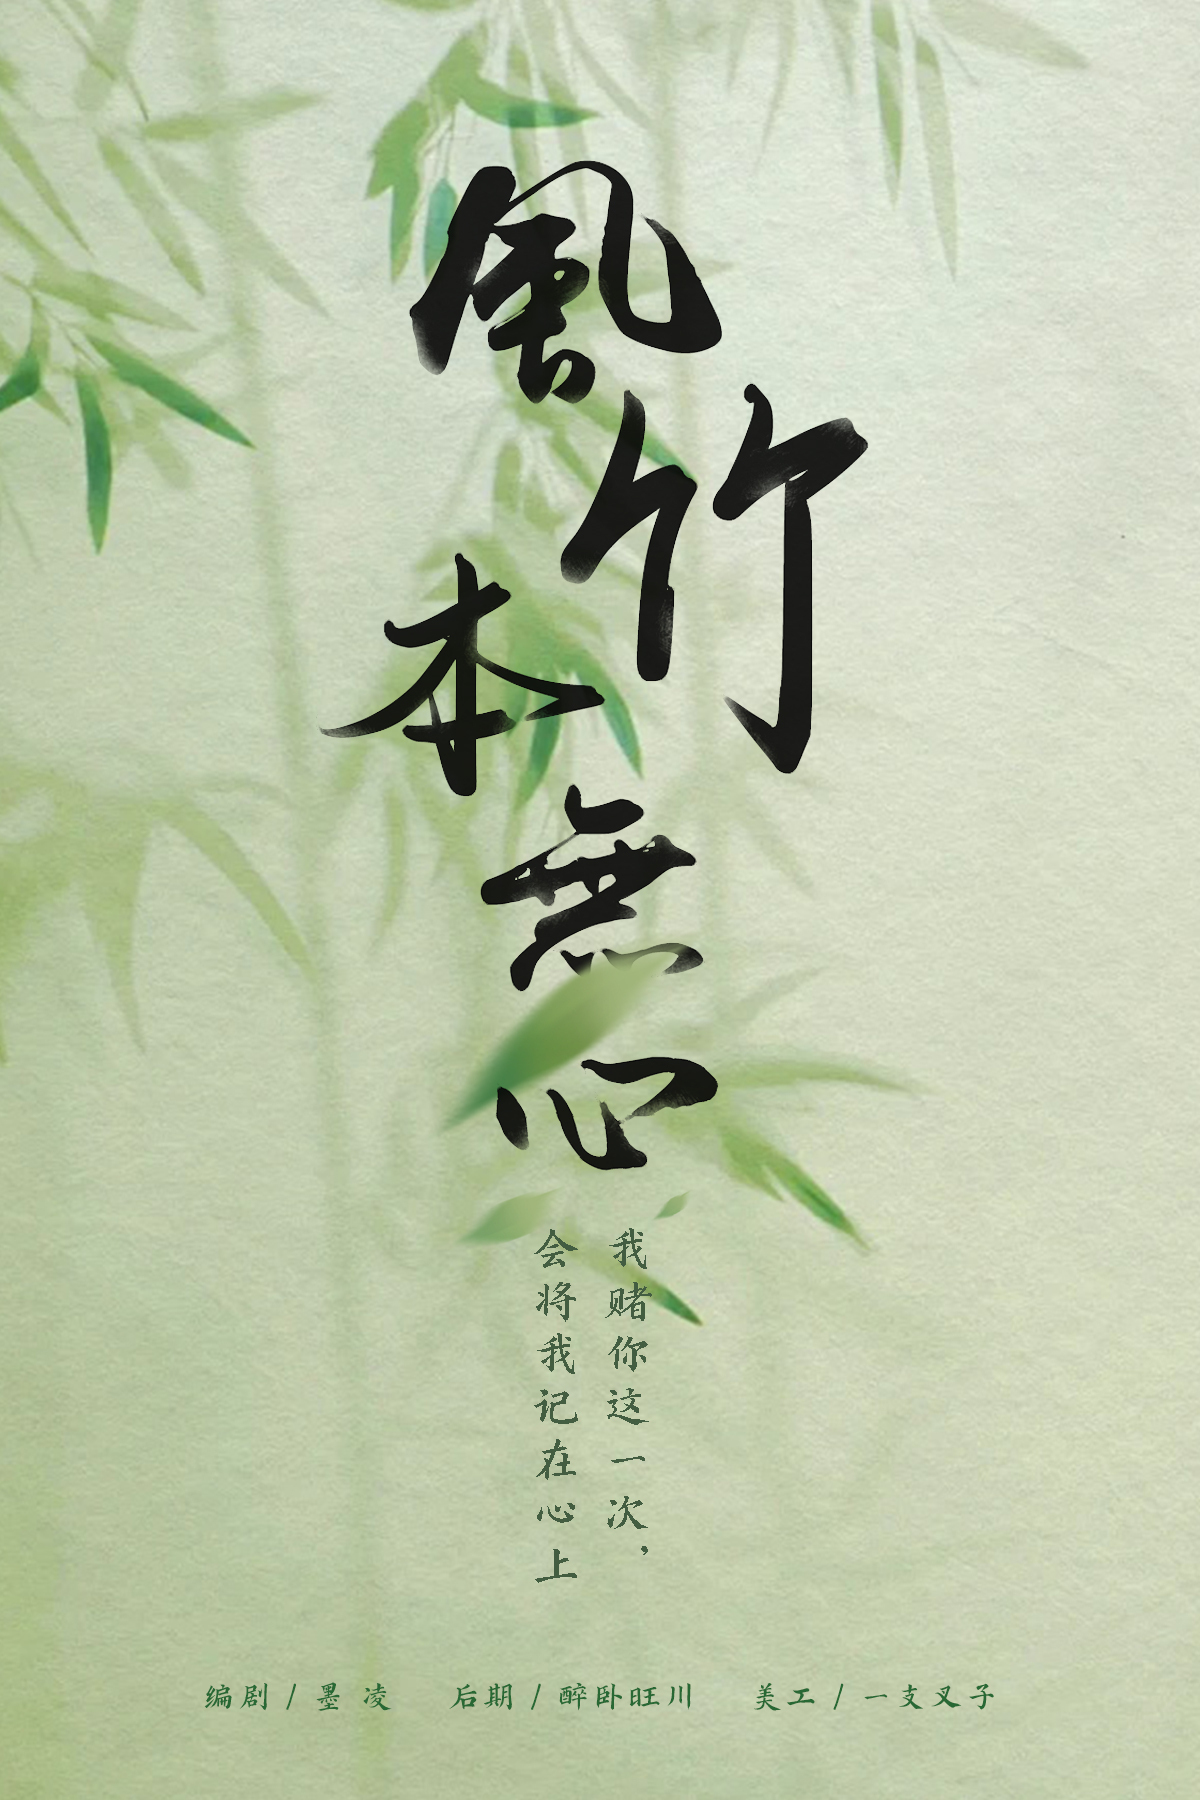 風竹本無心
我赌你这一次，
会将我记在心上
编剧 / 墨 凌 后期 / 醉卧旺川 美工 / 一支叉子